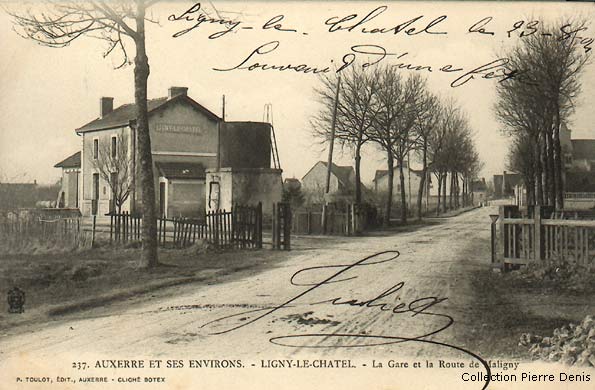 Ligny-le-Chatel le 23-8-
Souvenir d'une
LIGNY-LE-CHATEL
237. AUXERRE ET SES ENVIRONS. - LIGNY-LE-CHATEL. - La Gare et la Route de Maligny
P. TOULOT, ÉDIT., AUXERRE - CLICHÉ BOTEX
Collection Pierre Denis